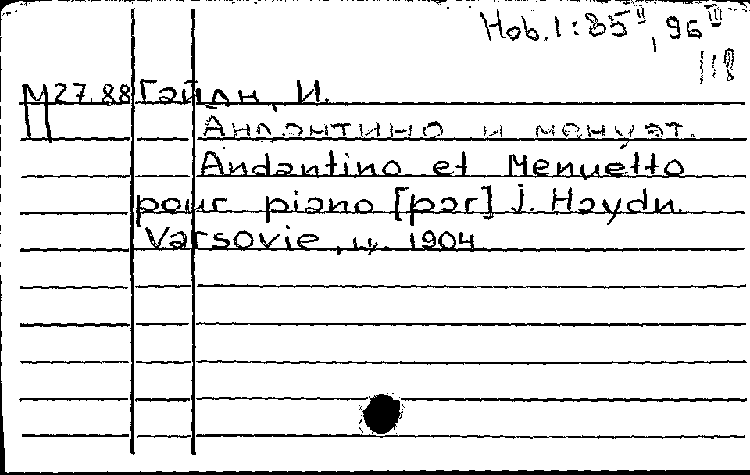 Hob. I: 85 II, 96 III
118
М 27.88 Гайдн, И.
П
Андантино и менуэт.
Andantino et Menuetto
pour piano [par] J. Haydn.
Varsovie, ц. 1904